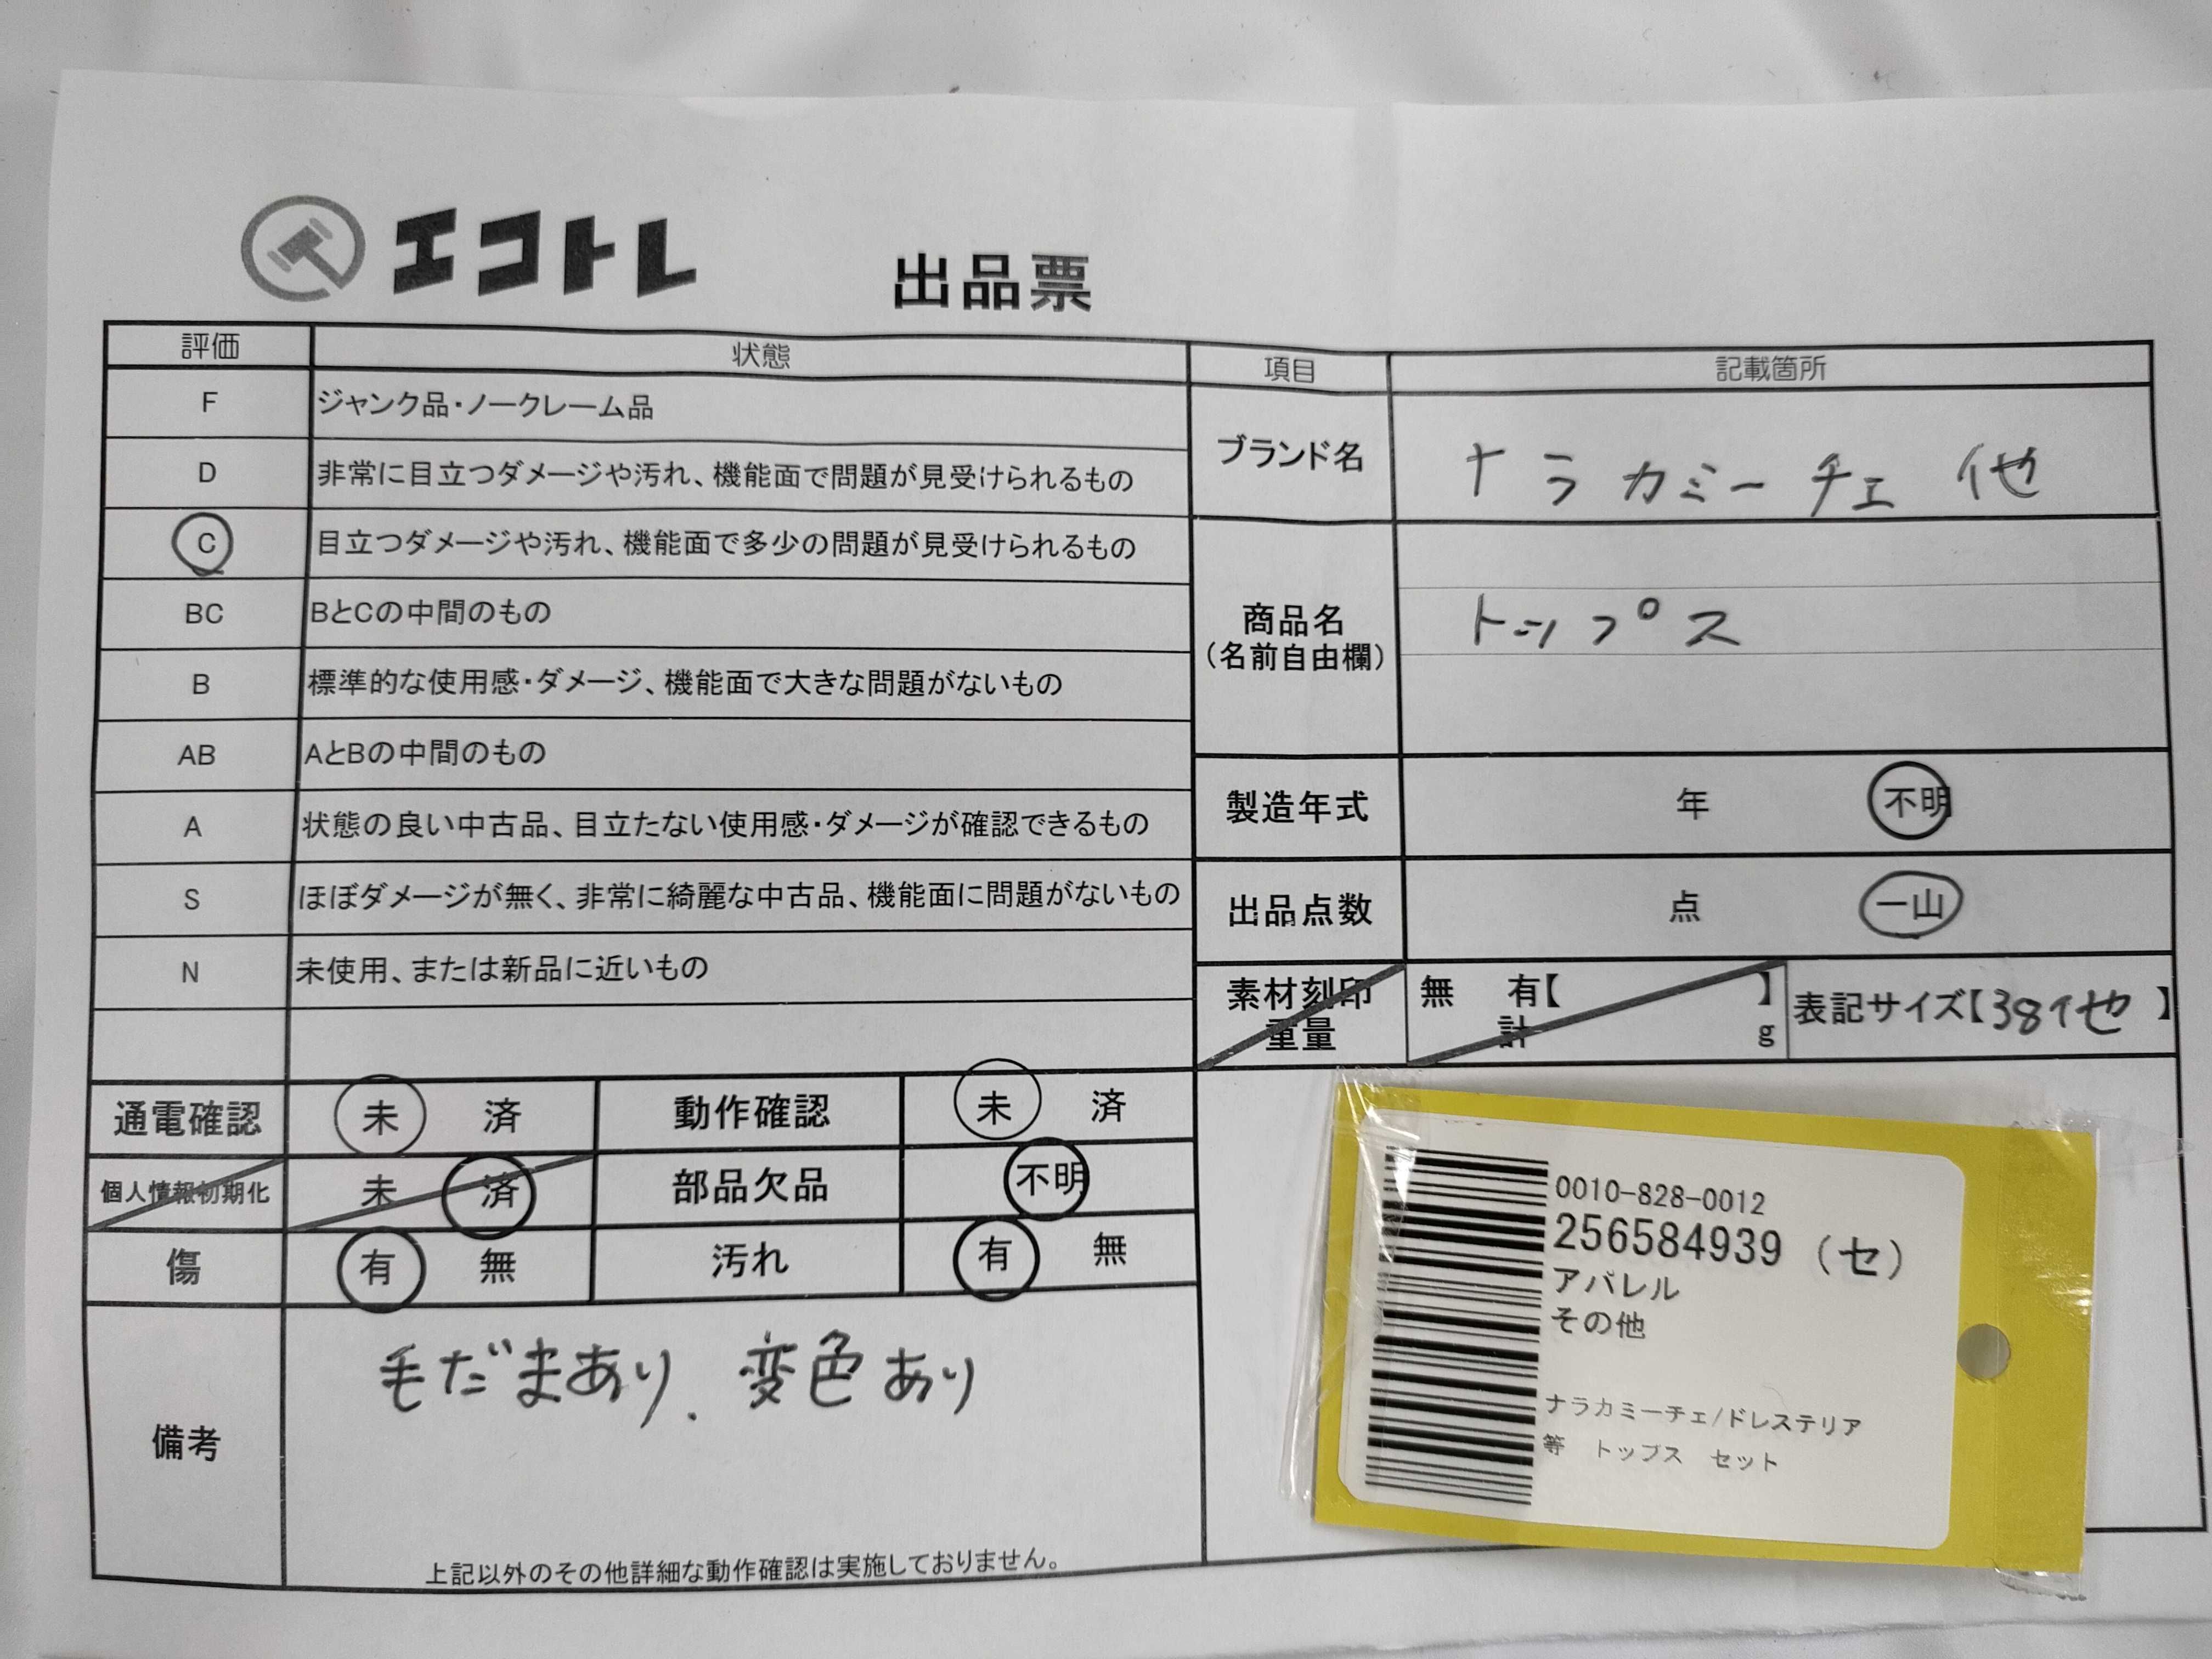 エコトレ
出品票
評価 状態
F ジャンク品・ノークレーム品
D 非常に目立つダメージや汚れ、機能面で問題が見受けられるもの
C 目立つダメージや汚れ、機能面で多少の問題が見受けられるもの
BC BとCの中間のもの
B 標準的な使用感・ダメージ、機能面で大きな問題がないもの
AB AとBの中間のもの
A 状態の良い中古品、目立たない使用感・ダメージが確認できるもの
S ほぼダメージが無く、非常に綺麗な中古品、機能面に問題がないもの
N 未使用、または新品に近いもの
通電確認 未 済 動作確認 未 済
個人情報初期化 未 済 部品欠品 不明
傷 有 無 汚れ 有 無
備考 毛だまあり、変色あり
上記以外のその他詳細な動作確認は実施しておりません。
項目 記載箇所
ブランド名 ナラカミーチェ 他
商品名
(名前自由欄)
トップス
製造年式 年 不明
出品点数 点 一山
素材刻印 無 有【 】
重量 計 g
表記サイズ【38他】
0010-828-0012
256584939 (セ)
アパレル
その他
ナラカミーチェ/ドレステリア
等 トップス セット